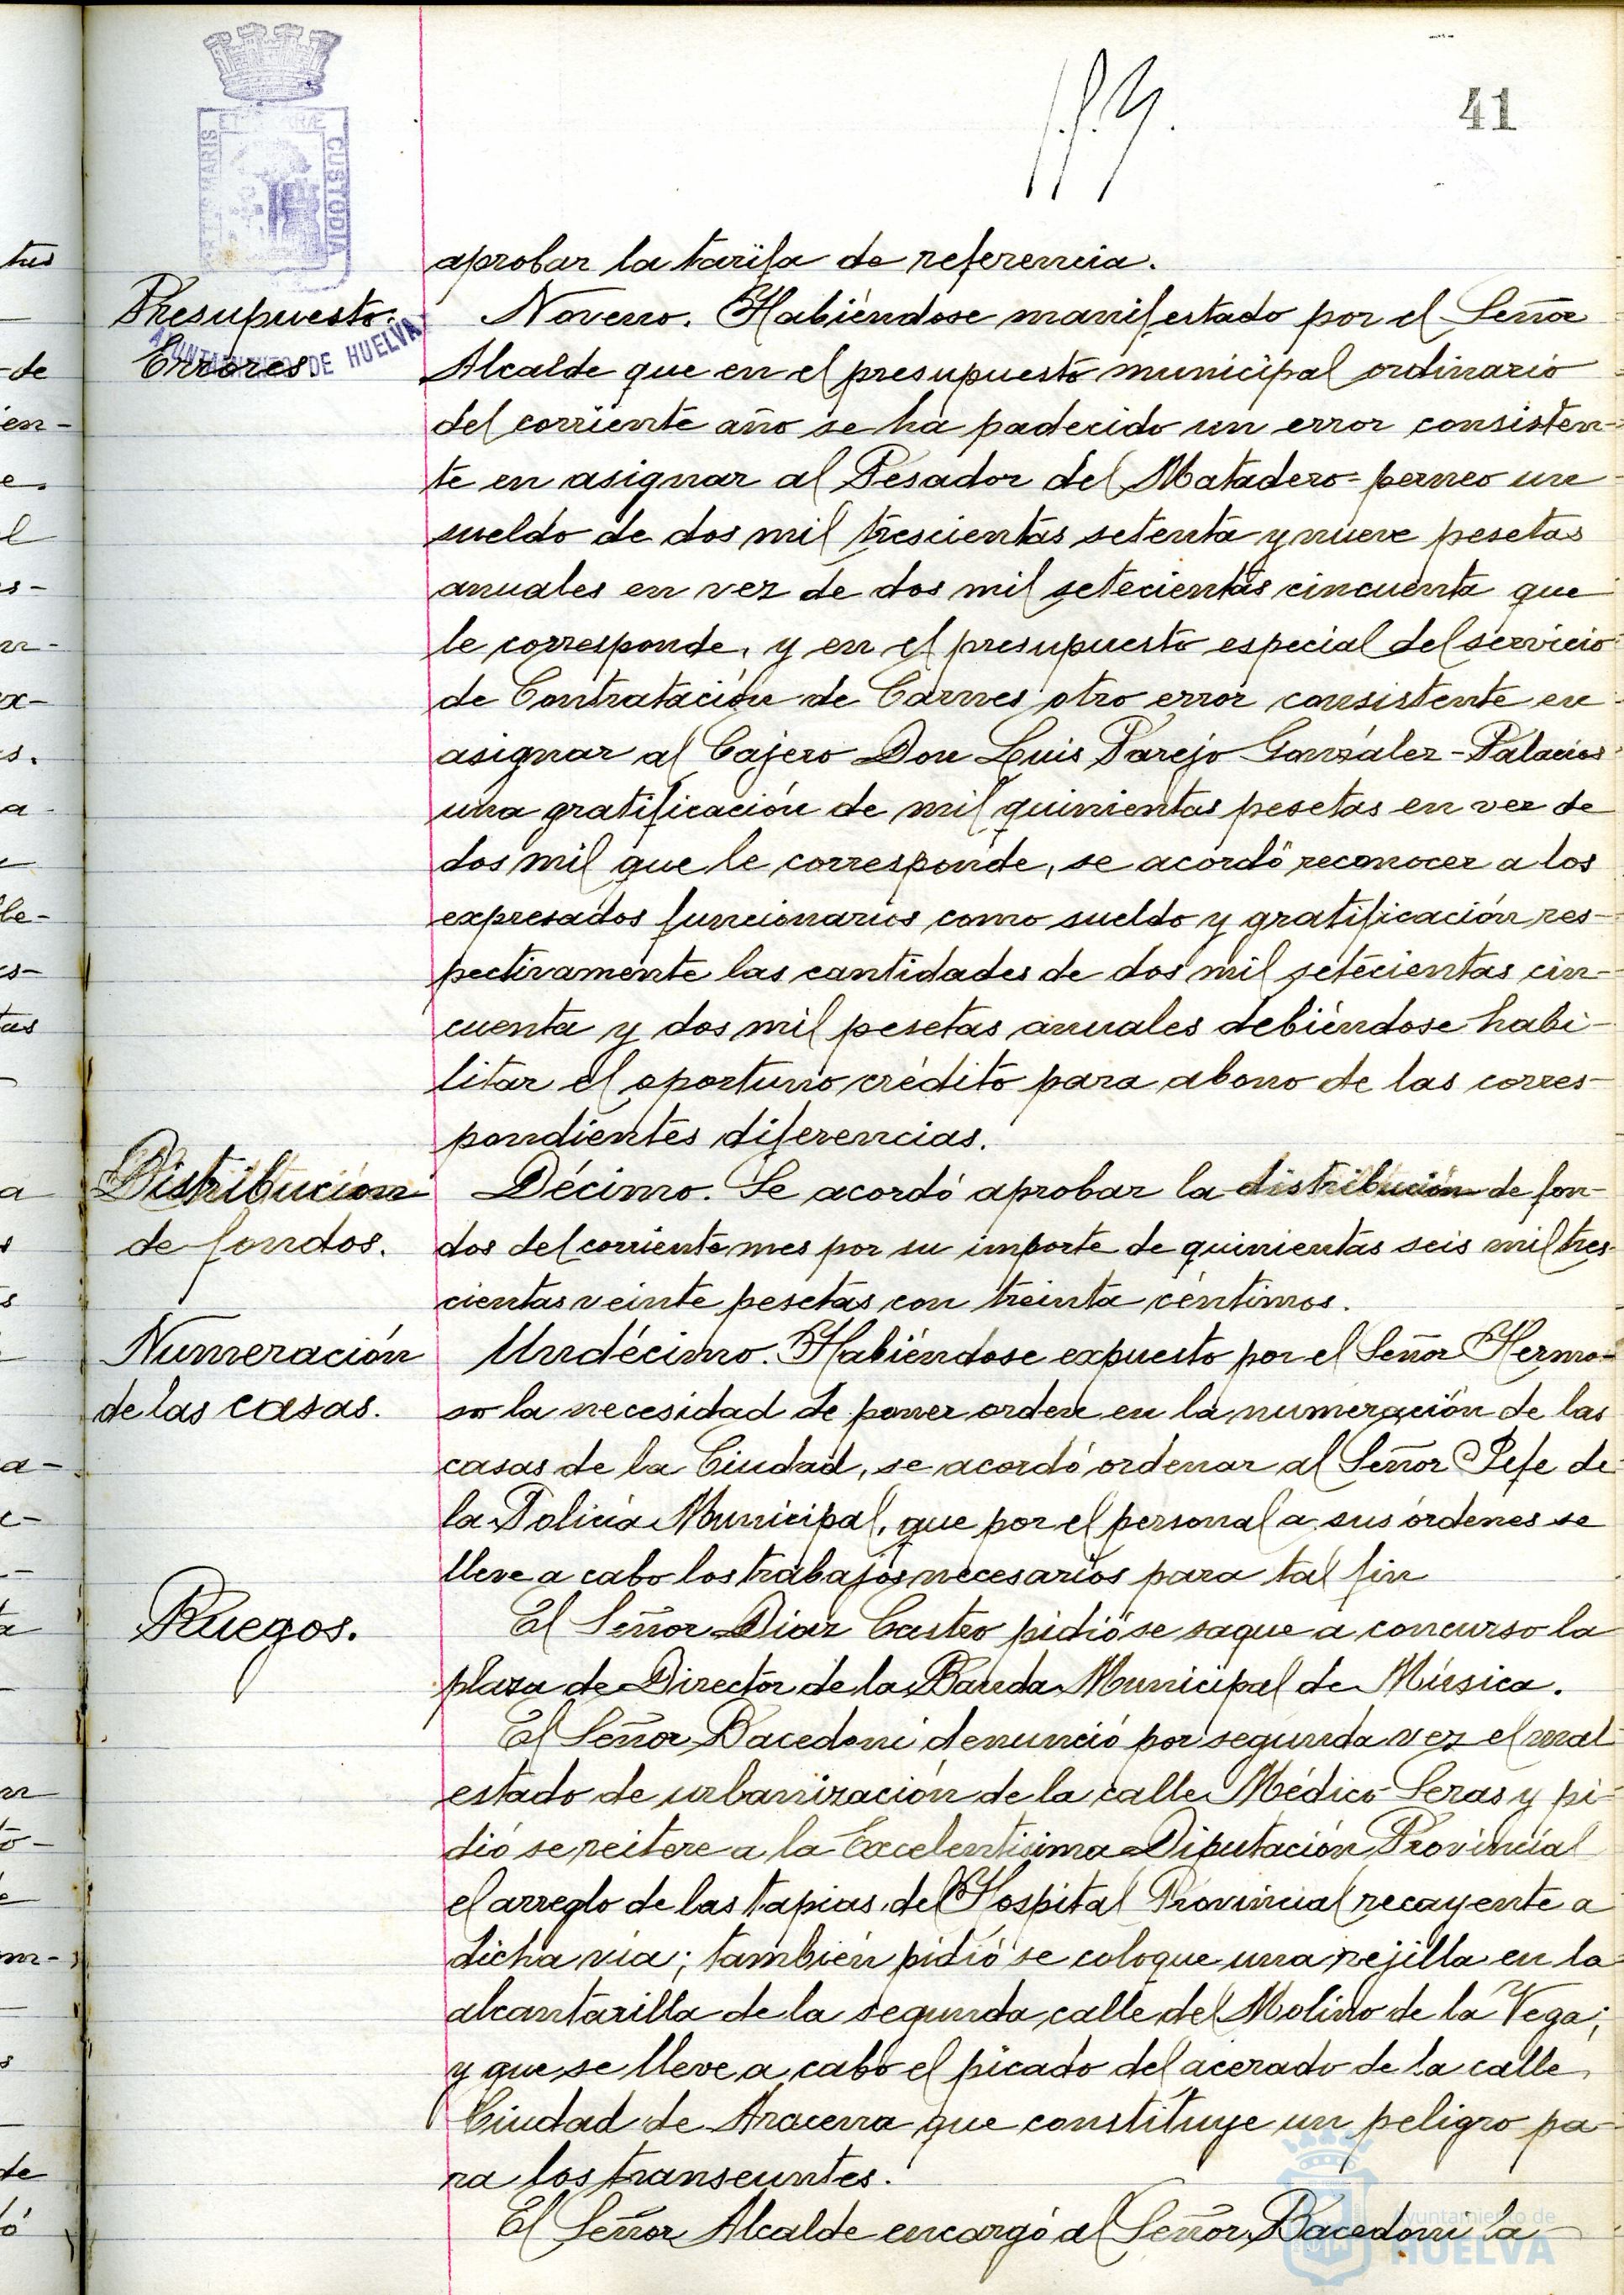 41
PORTUS MARIS ET TERRAE CUSTODIA
AYUNTAMIENTO DE HUELVA
aprobar la tarifa de referencia.
Presupuesto.
Errores
Noveno. Habiéndose manifestado por el Señor
Alcalde que en el presupuesto municipal ordinario
del corriente año se ha padecido un error consisten-
te en asignar al Pesador del Matadero-perneo un
sueldo de dos mil trescientas setenta y nueve pesetas
anuales en vez de dos mil setecientas cincuenta que
le corresponde, y en el presupuesto especial del servicio
de Contratación de Carnes otro error consistente en
asignar al Cajero Don Luis Parejo González-Palacios
una gratificación de mil quinientas pesetas en vez de
dos mil que le corresponde, se acordó reconocer a los
expresados funcionarios como sueldo y gratificación res-
pectivamente las cantidades de dos mil setecientas cin-
cuenta y dos mil pesetas anuales debiéndose habi-
litar el oportuno crédito para abono de las corres-
pondientes diferencias.
Distribución
de fondos.
Décimo. Se acordó aprobar la distribución de fon-
dos del corriente mes por su importe de quinientas seis mil tres-
cientas veinte pesetas con treinta céntimos.
Numeración
de las casas.
Undécimo. Habiéndose expuesto por el Señor Hermo-
so la necesidad de poner orden en la numeración de las
casas de la Ciudad, se acordó ordenar al Señor Jefe de
la Policía Municipal, que por el personal a sus órdenes se
lleve a cabo los trabajos necesarios para tal fin
Ruegos.
El Señor Díaz Castro pidió se saque a concurso la
plaza de Director de la Banda Municipal de Música.
El Señor Bacedoni denunció por segunda vez el mal
estado de urbanización de la calle Médico Seras y pi-
dió se reitere a la Excelentísima Diputación Provincial
el arreglo de las tapias del Hospital Provincial recayente a
dicha vía; también pidió se coloque una rejilla en la
alcantarilla de la segunda calle del Molino de la Vega;
y que se lleve a cabo el picado del acerado de la calle
Ciudad de Aracena que constituye un peligro pa-
ra los transeuntes.
El Señor Alcalde encargó al Señor Bacedoni la
Ayuntamiento de
HUELVA